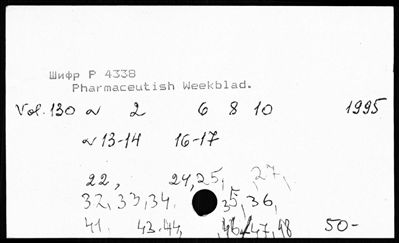 Шифр Р 4338
Pharmaceutish Weekblad.
Vol. 130 N 2 6 8 10 1995
N 13-14 16-17
22, 24, 25, 27,
32, 33, 34. 35, 36,
41. 43.44, 46, 47, 48 50-